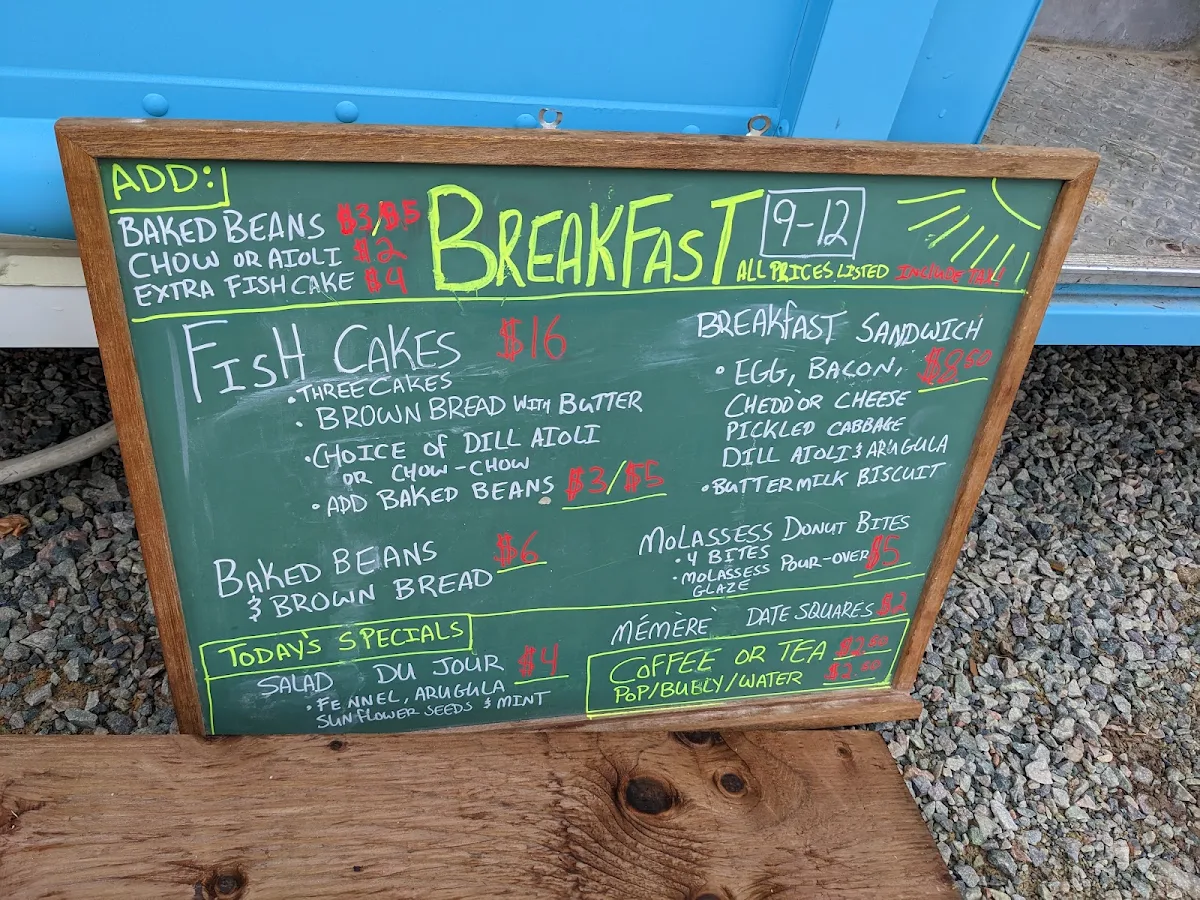 ADD:
BAKED BEANS $3/$5
CHOW OR AIOLI $2
EXTRA FISH CAKE $4
BREAKFAST 9-12
ALL PRICES LISTED INCLUDE TAX!
FISH CAKES $16
• THREE CAKES
• BROWN BREAD WITH BUTTER
• CHOICE OF DILL AIOLI
OR CHOW-CHOW
• ADD BAKED BEANS $3/$5
BAKED BEANS $6
& BROWN BREAD
BREAKFAST SANDWICH
• EGG, BACON, $8.50
CHEDDOR CHEESE
PICKLED CABBAGE
DILL AIOLI & ARUGULA
• BUTTERMILK BISCUIT
MOLASSESS DONUT BITES
• 4 BITES
• MOLASSESS POUR-OVER $5
GLAZE
MÉMÈRÈ DATE SQUARES $2
TODAY'S SPECIALS
SALAD DU JOUR $4
• FENNEL, ARUGULA
SUNFLOWER SEEDS & MINT
COFFEE OR TEA $2.50
POP/BUBLY/WATER $2.00